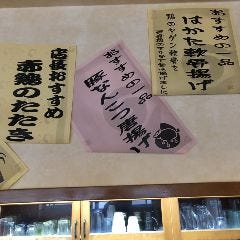 おすすめの一品
はかた軟骨揚げ
鶏のヤゲン軟骨を
おすすめの一品
豚なんこつ唐揚げ
店長おすすめ
赤鶏のたたき